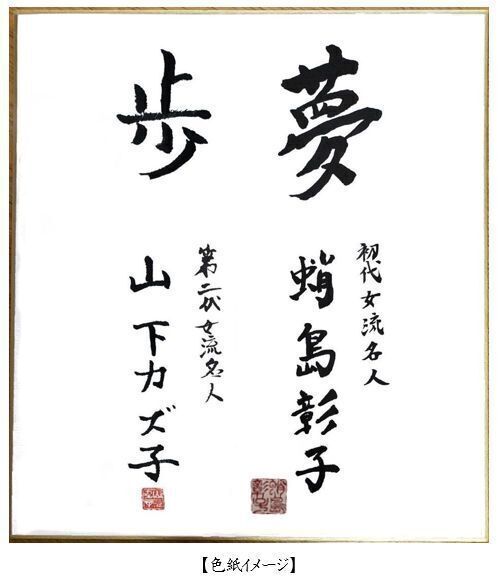 夢
初代女流名人
蛸島彰子
歩
第二代女流名人
山下カズ子
【色紙イメージ】